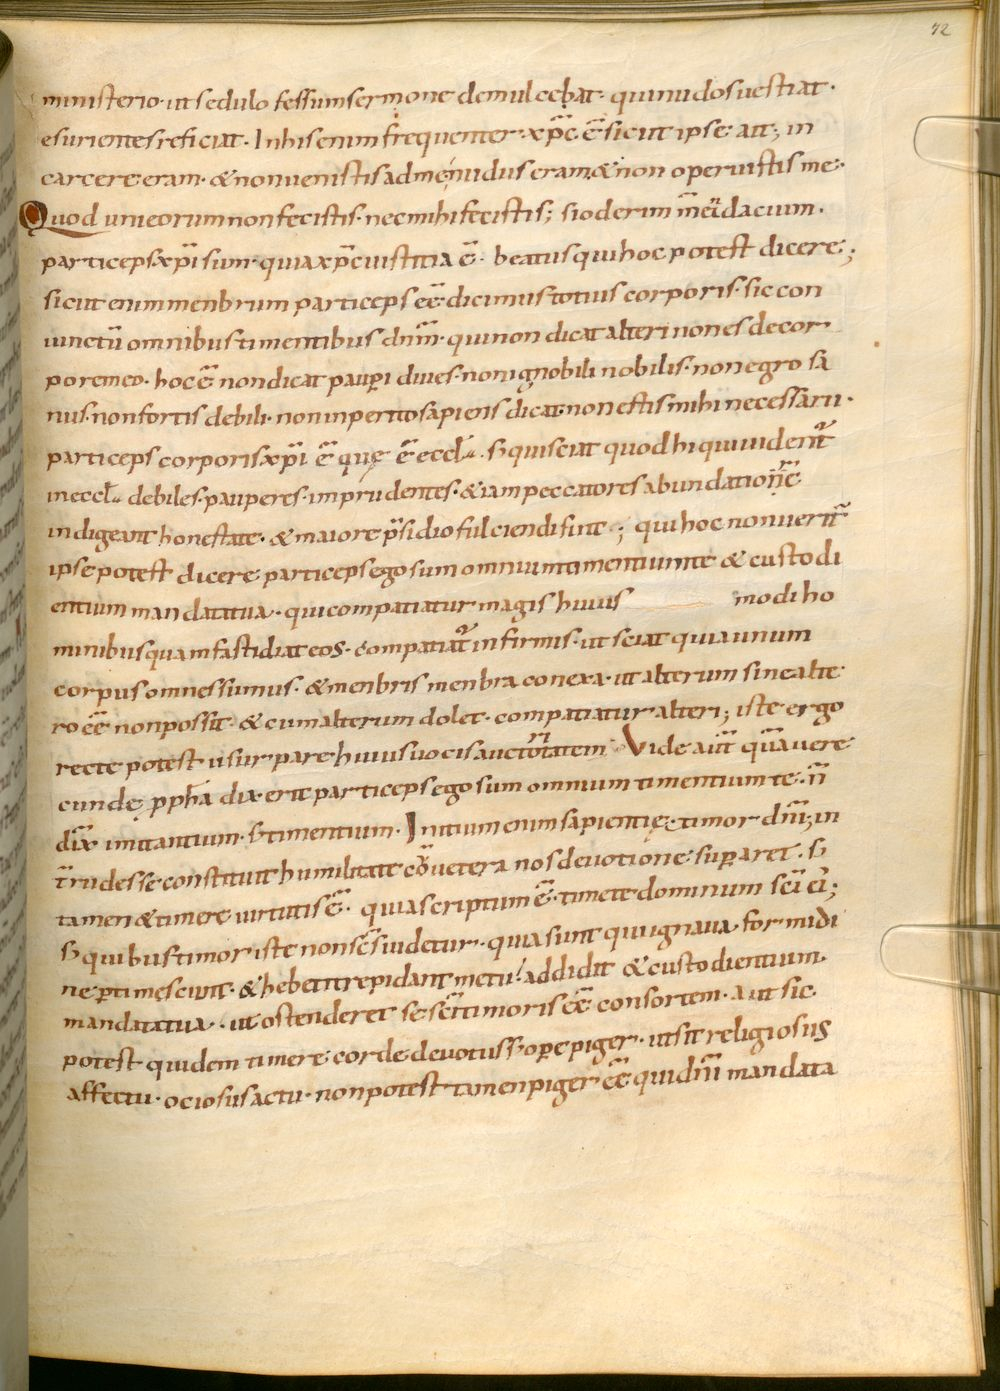 72
ministerio· ut sedulo fessum sermone demulcebat· qui nudos vestiat·
esurientes reficiat· In his enim frequenter xp̄c ē sicut ipse ait; in
carcere eram· & non venistis ad me; nudus eram & non operuistis me·
Quod uni eorum non fecistis· nec mihi fecistis; si oderim m̄dacium·
particeps xp̄i sum· quia xp̄c iustitia ē· beatus qui hoc potest dicere;
sicut enim menbrum particeps eē dicimus totius corporis· sic con
iunctū omnibus timentibus dn̄m· qui non dicat alteri non es de cor
pore meo· hoc ē non dicat paup̄i dives· non ignobili nobilis· non egro sa
nus· non fortis debili· non inperito sapiens dicat non estis mihi necessarii·
particeps corporis xp̄i ē quę ē eccl̄a· s; qui sciat quod hi qui vident̄
in eccl̄a debiles· pauperes· imprudentes· & iam peccatores abundatiore
indigeant honestate· & maiore p̄sidio fulciendi sint; qui hoc noverit
ipse potest dicere particeps ego sum omnium timentium te & custodi
entium mandata tua· qui compatiatur magis huius modi ho
minibus quam fastidiat eos· compatiat̄ infirmis· ut sciat quia unum
corpus omnes sumus· & menbris menbra conexa· ut alterum sine alte
ro eē non possit· & cum alterum dolet· compatiatur alteri; iste ergo
recte potest usurpare huius vocis auctoritatem Vide aut̄ quā vere
cunde p̄ph̄a dix erit particeps ego sum omnium timentium te· n̄
dix̄ imitantium· s; timentium· Initium enim sapientię· timor dn̄i; in
t̄ridesse constituit humilitate cū vetera nos devotione superaret· s;
tamen & timere virtutis ē· quia scriptum ē· timete dominum sc̄i ei;
s; quibus timor iste non sc̄s videtur· quia sunt qui ignava formidi
ne p̄timescunt· & hebeti trepidant metu· addidit & custodientium
mandata tua· ut ostenderet se sc̄i timoris eē consortem· aut sic
potest quidem timere corde devotus s; ope piger· ut sit religiosus
affectu· ociosus actu· non potest tamen piger eē qui dn̄i mandata